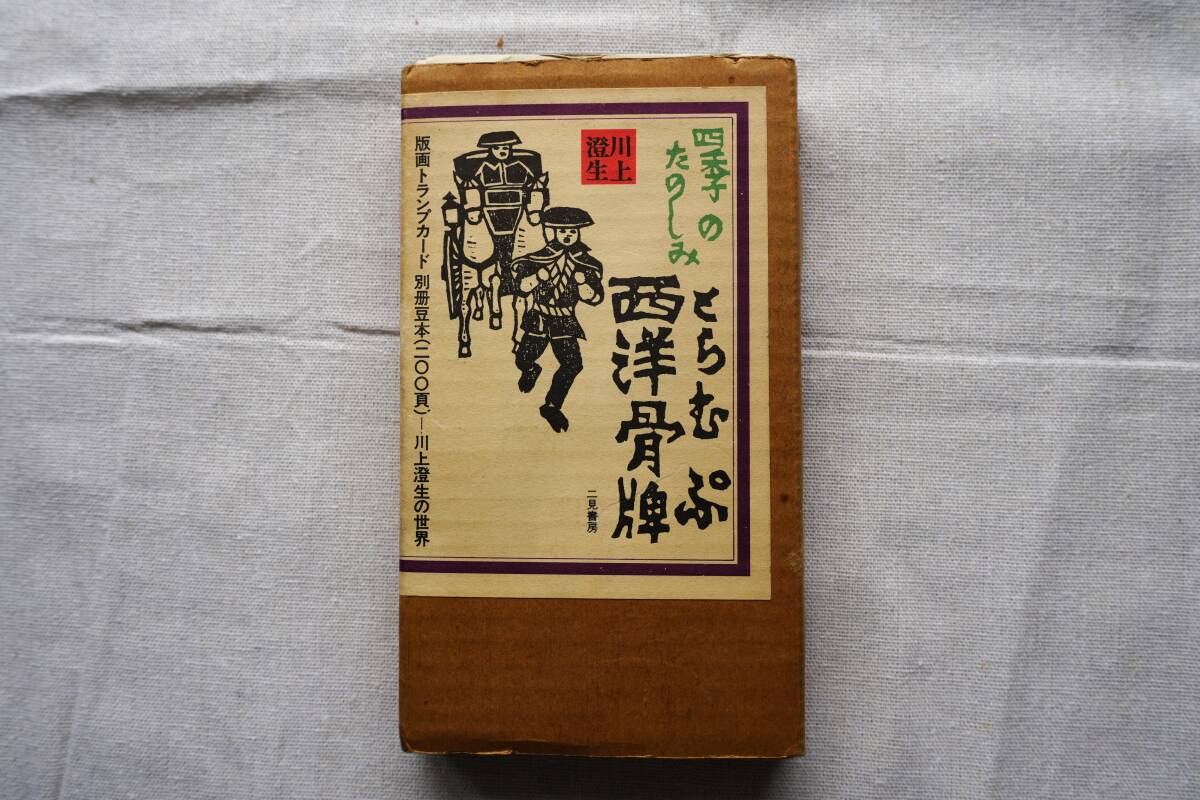 四季の
たのしみ
とらむぷ
西洋骨牌
川上
澄生
二見書房
版画トランプカード 別冊豆本(二〇〇頁)―川上澄生の世界